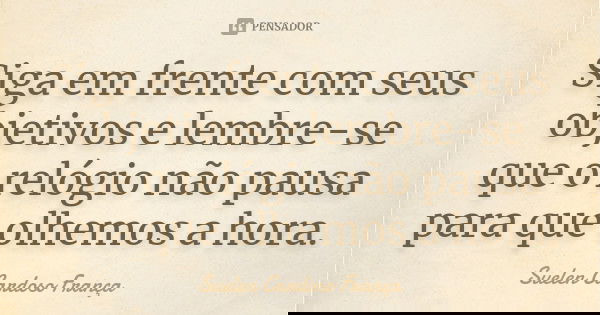 PENSADOR
Siga em frente com seus
objetivos e lembre-se
que o relógio não pausa
para que olhemos a hora.
Suelen Cardoso França